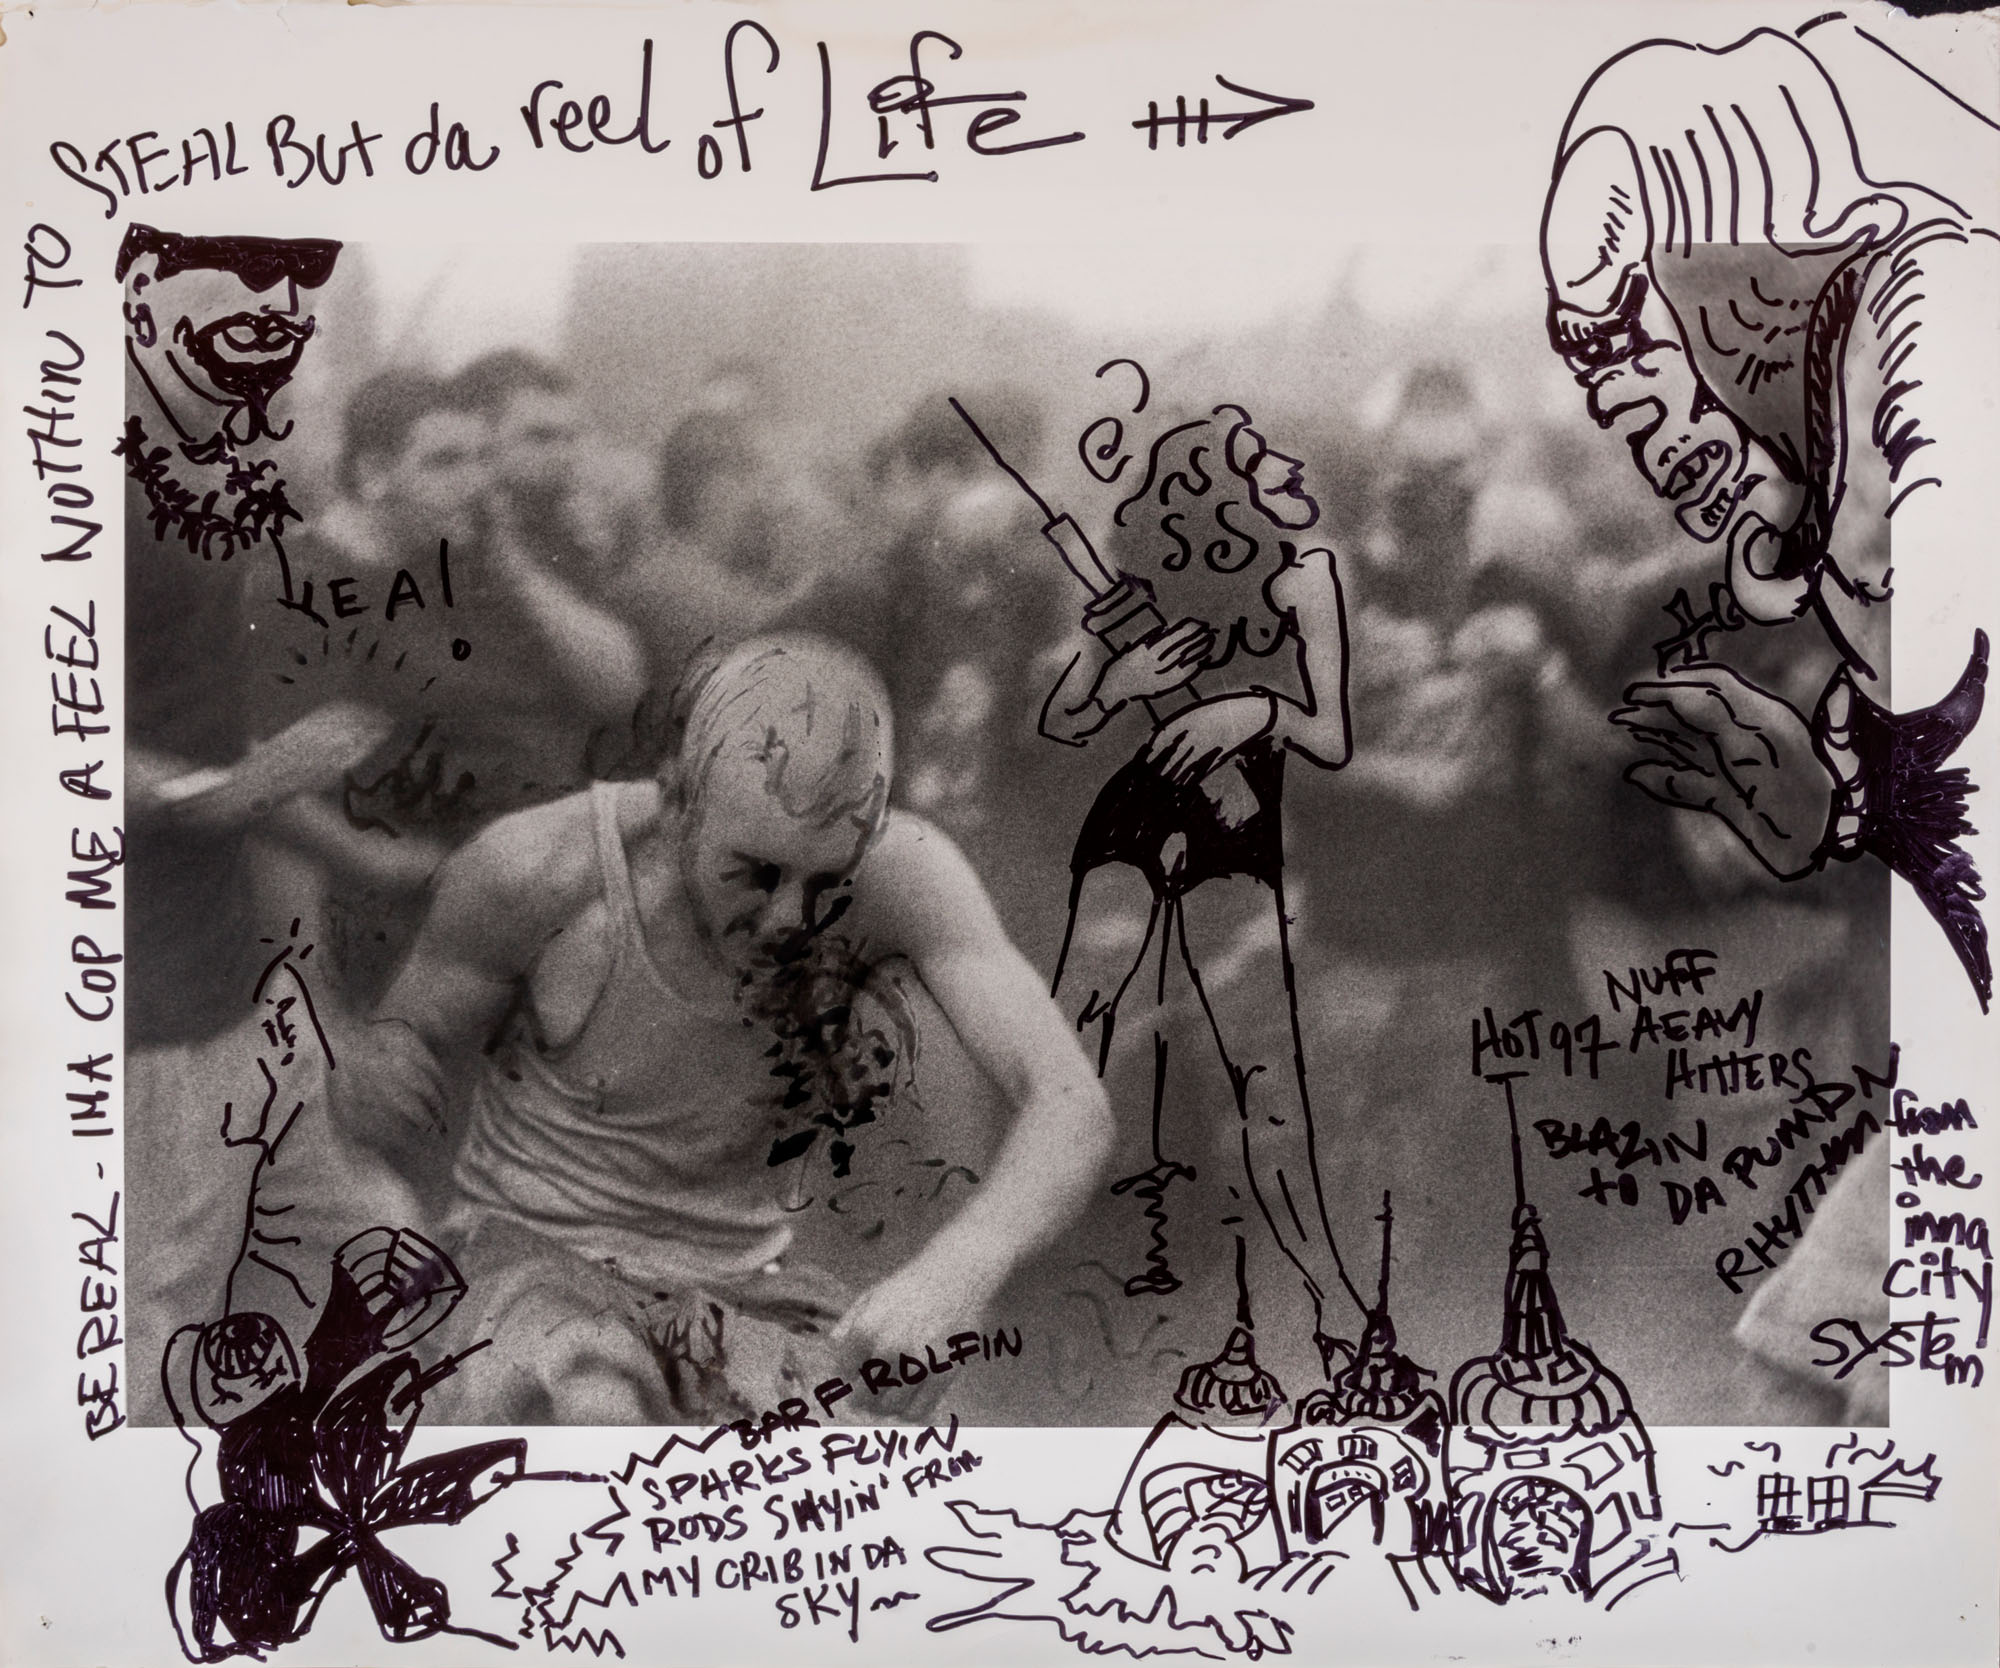 BEREAL - IMA COP ME A FEEL NOTHIN TO
STEAL BUt da reel of Life
YEA!
NUFF
HOT 97 HEAVY
HITTERS
BLAZIN
to DA PUMPN
RHYTHM
from
the
inna
City
SYSTEm
BARF ROLFIN
SPARKS FLYIN
RODS SHYIN' FROM
MY CRIB IN DA
SKY